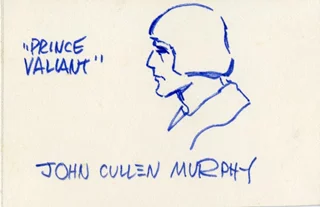 "PRINCE
VALIANT"
JOHN CULLEN MURPHY